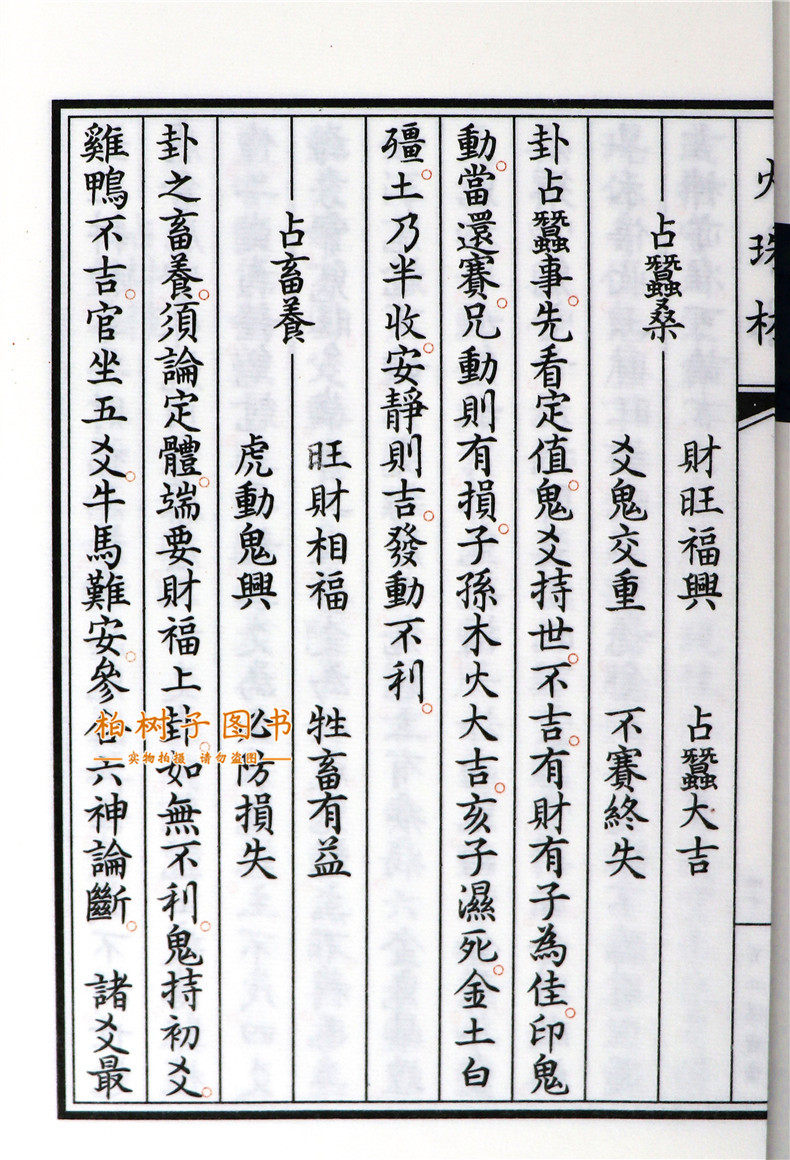 火珠林
占蠶桑
財旺福興 占蠶大吉
爻鬼交重 不賽終失
卦占蠶事。先看定值。鬼爻持世。不吉。有財有子為佳。印鬼
動。當還賽。兄動則有損。子孫木火大吉。亥子濕死。金土白
殭。土乃半收。安靜則吉。發動不利。
占畜養
旺財相福 牲畜有益
虎動鬼興 必防損失
卦之畜養。須論定體。端要財福上卦。如無不利。鬼持初爻。
雞鴨不吉。官坐五爻。牛馬難安。參合六神論斷。 諸爻最
柏树子图书
实物拍摄 请勿盗图